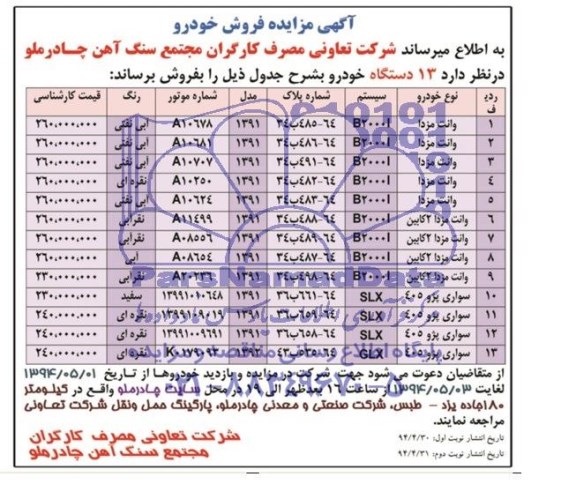 آگهی مزایده فروش خودرو
به اطلاع میرساند شرکت تعاونی مصرف کارگران مجتمع سنگ آهن چادرملو
درنظر دارد ۱۳ دستگاه خودرو بشرح جدول ذیل را بفروش برساند:
ردیف نوع خودرو سیستم شماره پلاک مدل شماره موتور رنگ قیمت کارشناسی
۱ وانت مزدا B۲۰۰۰I ۶۴-۴۸۵ب۳۴ ۱۳۹۱ A۱۰۶۷۸ ابی نفتی ۲۶۰,۰۰۰,۰۰۰
۲ وانت مزدا B۲۰۰۰I ۶۴-۴۸۶ب۳۴ ۱۳۹۱ A۱۰۶۸۱ ابی نفتی ۲۶۰,۰۰۰,۰۰۰
۳ وانت مزدا B۲۰۰۰I ۶۴-۴۹۱ب۳۴ ۱۳۹۱ A۱۰۷۰۷ ابی نفتی ۲۶۰,۰۰۰,۰۰۰
۴ وانت مزدا B۲۰۰۰I ۶۴-۴۸۲ب۳۴ ۱۳۹۱ A۱۰۲۵۰ نقره ای ۲۶۰,۰۰۰,۰۰۰
۵ وانت مزدا B۲۰۰۰I ۶۴-۴۸۳ب۳۴ ۱۳۹۱ A۱۰۶۲۴ ابی نفتی ۲۶۰,۰۰۰,۰۰۰
۶ وانت مزدا ۲کابین B۲۰۰۰I ۶۴-۴۸۸ب۳۴ ۱۳۹۱ A۱۱۴۹۹ نقرابی ۲۶۰,۰۰۰,۰۰۰
۷ وانت مزدا ۲کابین B۲۰۰۰I ۶۴-۴۸۹ب۳۴ ۱۳۹۱ A۰۸۵۵۶ نقرابی ۲۶۰,۰۰۰,۰۰۰
۸ وانت مزدا ۲کابین B۲۰۰۰I ۶۴-۴۸۷ب۳۴ ۱۳۹۱ A۰۸۶۵۴ ابی ۲۶۰,۰۰۰,۰۰۰
۹ وانت مزدا ۲کابین B۲۰۰۰I ۶۴-۴۹۸ب۳۴ ۱۳۹۱ A۲۰۲۳۶ نقرابی ۲۳۰,۰۰۰,۰۰۰
۱۰ سواری پژو ۴۰۵ SLX ۶۴-۶۶۱ب۳۶ ۱۳۹۱ ۱۳۹۹۱۰۱۰۶۴۸ سفید ۲۳۰,۰۰۰,۰۰۰
۱۱ سواری پژو ۴۰۵ SLX ۶۴-۶۵۹ب۳۶ ۱۳۹۱ ۱۳۹۹۱۰۹۰۱۹ نقره ای ۲۴۰,۰۰۰,۰۰۰
۱۲ سواری پژو ۴۰۵ SLX ۶۴-۶۵۸ب۳۶ ۱۳۹۱ نقره ای ۲۴۰,۰۰۰,۰۰۰
۱۳ سواری پژو ۴۰۵ GLX ۱۳۹۱ نقره ای ۲۴۰,۰۰۰,۰۰۰
از متقاضیان دعوت می شود جهت شرکت در مزایده و بازدید خودروها از تاریخ ۱۳۹۴/۰۵/۰۱
لغایت ۱۳۹۴/۰۵/۰۳ از ساعت ۱۶ بعدظهر الی ۱۹ در محل سایت چادرملو واقع در کیلومتر
۱۸۰جاده یزد – طبس، شرکت صنعتی و معدنی چادرملو، پارکینگ حمل ونقل شرکت تعاونی
مراجعه نمایند.
شرکت تعاونی مصرف کارگران
مجتمع سنگ آهن چادرملو
تاریخ انتشار نوبت اول: ۹۴/۴/۳۰
تاریخ انتشار نوبت دوم: ۹۴/۴/۳۱
ParsNamadData
پایگاه اطلاع رسانی مناقصه و مزایده